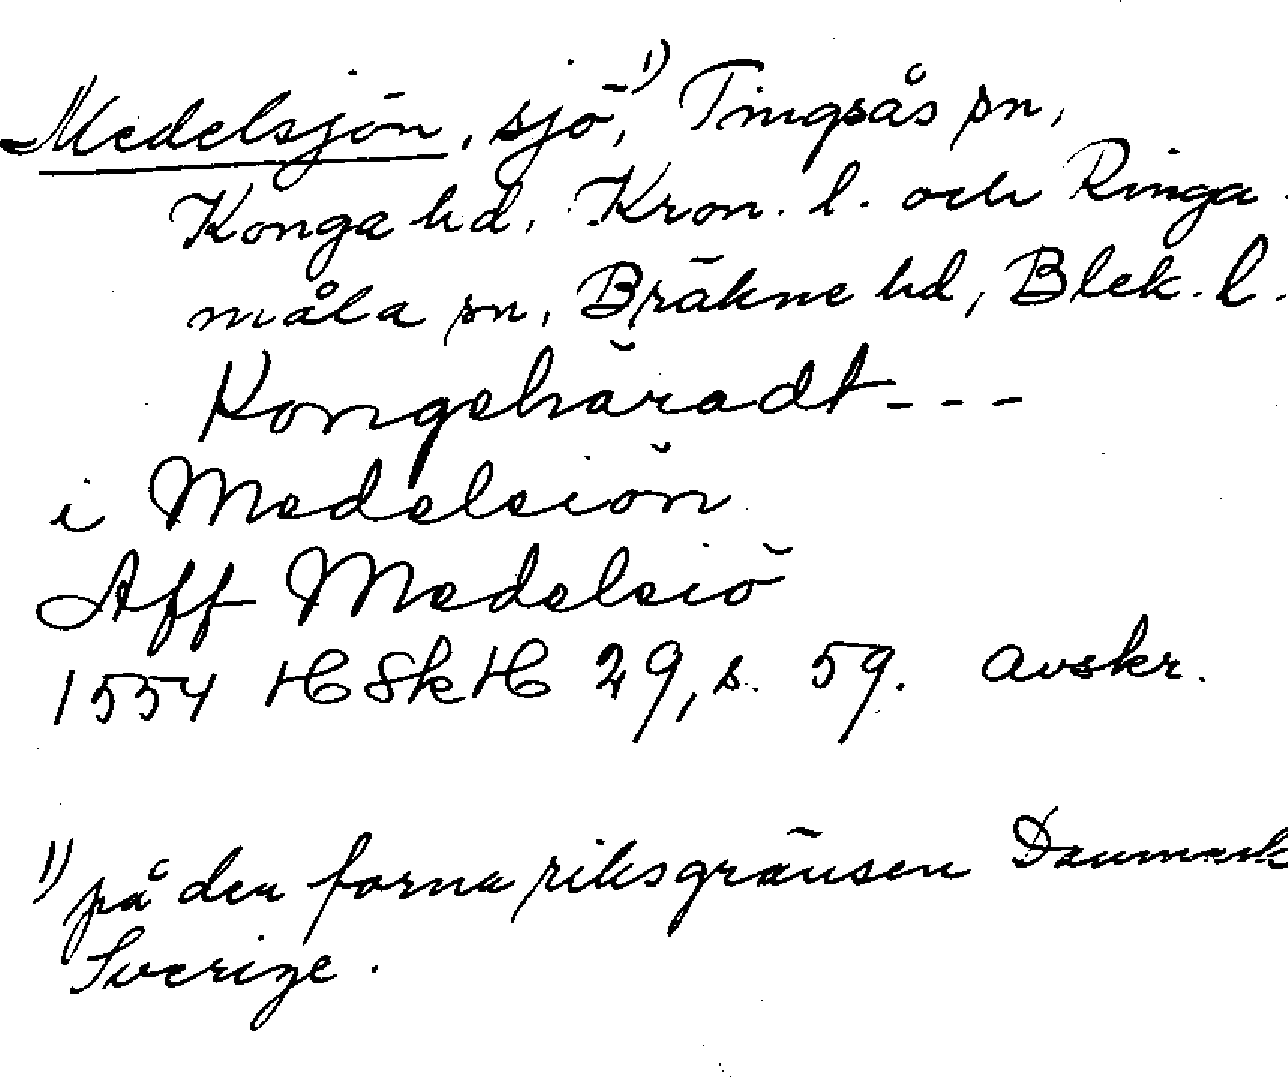 Medelsjön, sjö,¹⁾ Tingsås sn,
Konga hd, Kron. l. och Ringa-
måla sn, Bräkne hd, Blek. l.
Kongehäradt - - -
i Medelsiön
Aff Medelsiö
1554 HSkH 29, s. 59. avskr.
¹⁾ på den forna riksgränsen Danmark
Sverige.